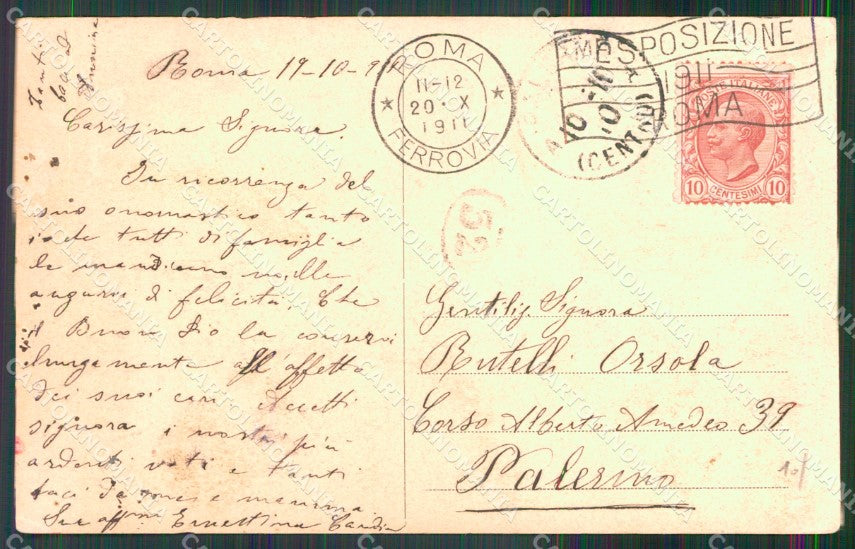 Tanti
baci
Roma 19-10-911
Carissima Signora
In ricorrenza del
suo onomastico tanto
io che tutti di famiglia
le mandiamo mille
auguri di felicità. Che
il Buon Dio la conservi
lungamente all'affetto
dei suoi cari. Accetti
signora i nostri più
ardenti voti e tanti
baci da me e mamma
Sua affma Ernestina
ROMA
11-12
20 X
1911
FERROVIA
ESPOSIZIONE
1911
ROMA
(CENTRO)
POSTE ITALIANE
10 CENTESIMI 10
52
Gentilis Signora
Rutelli Orsola
Corso Alberto Amedeo 39
Palermo
10f
CARTOLINOMANIA